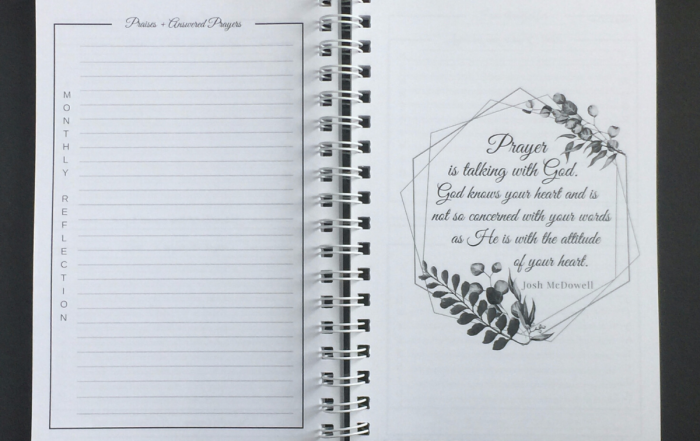 Praises + Answered Prayers
MONTHLY REFLECTION
Prayer
is talking with God.
God knows your heart and is
not so concerned with your words
as He is with the attitude
of your heart.
Josh McDowell